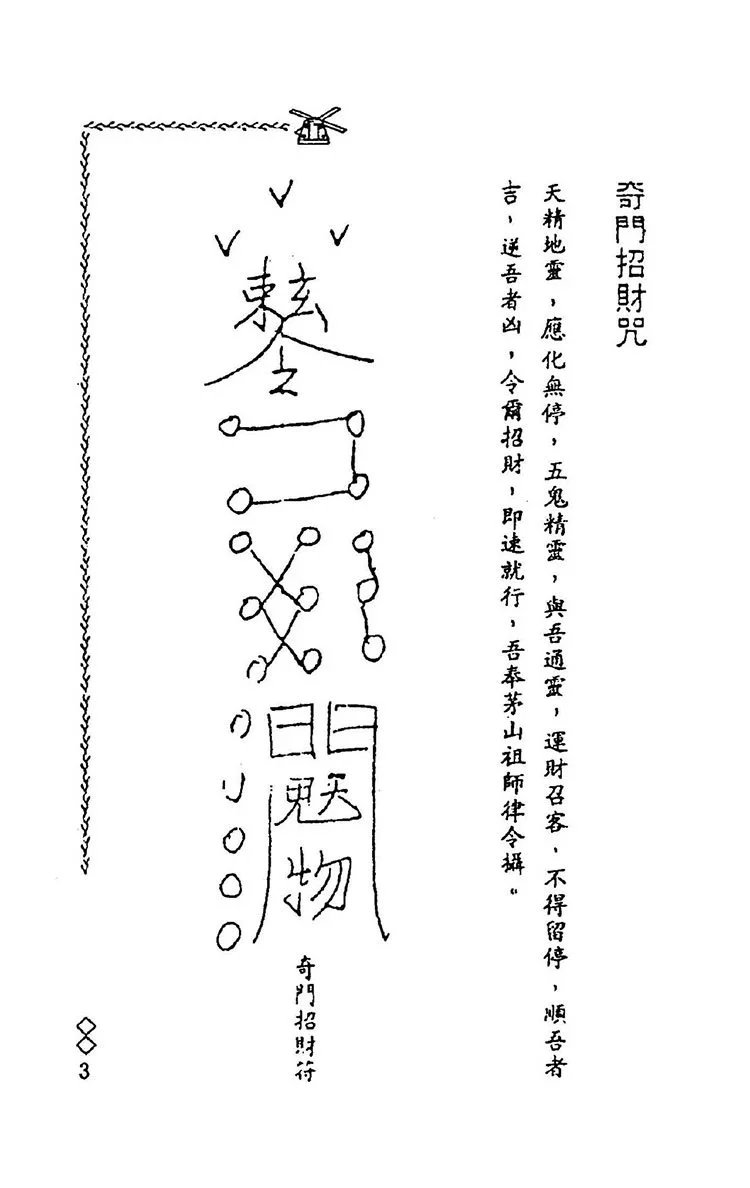 奇門招財咒
天精地靈，應化無停，五鬼精靈，與吾通靈，運財召客，不得留停，順吾者
吉，逆吾者凶，令爾招財，即速就行，吾奉茅山祖師律令攝。
奇門招財符
3